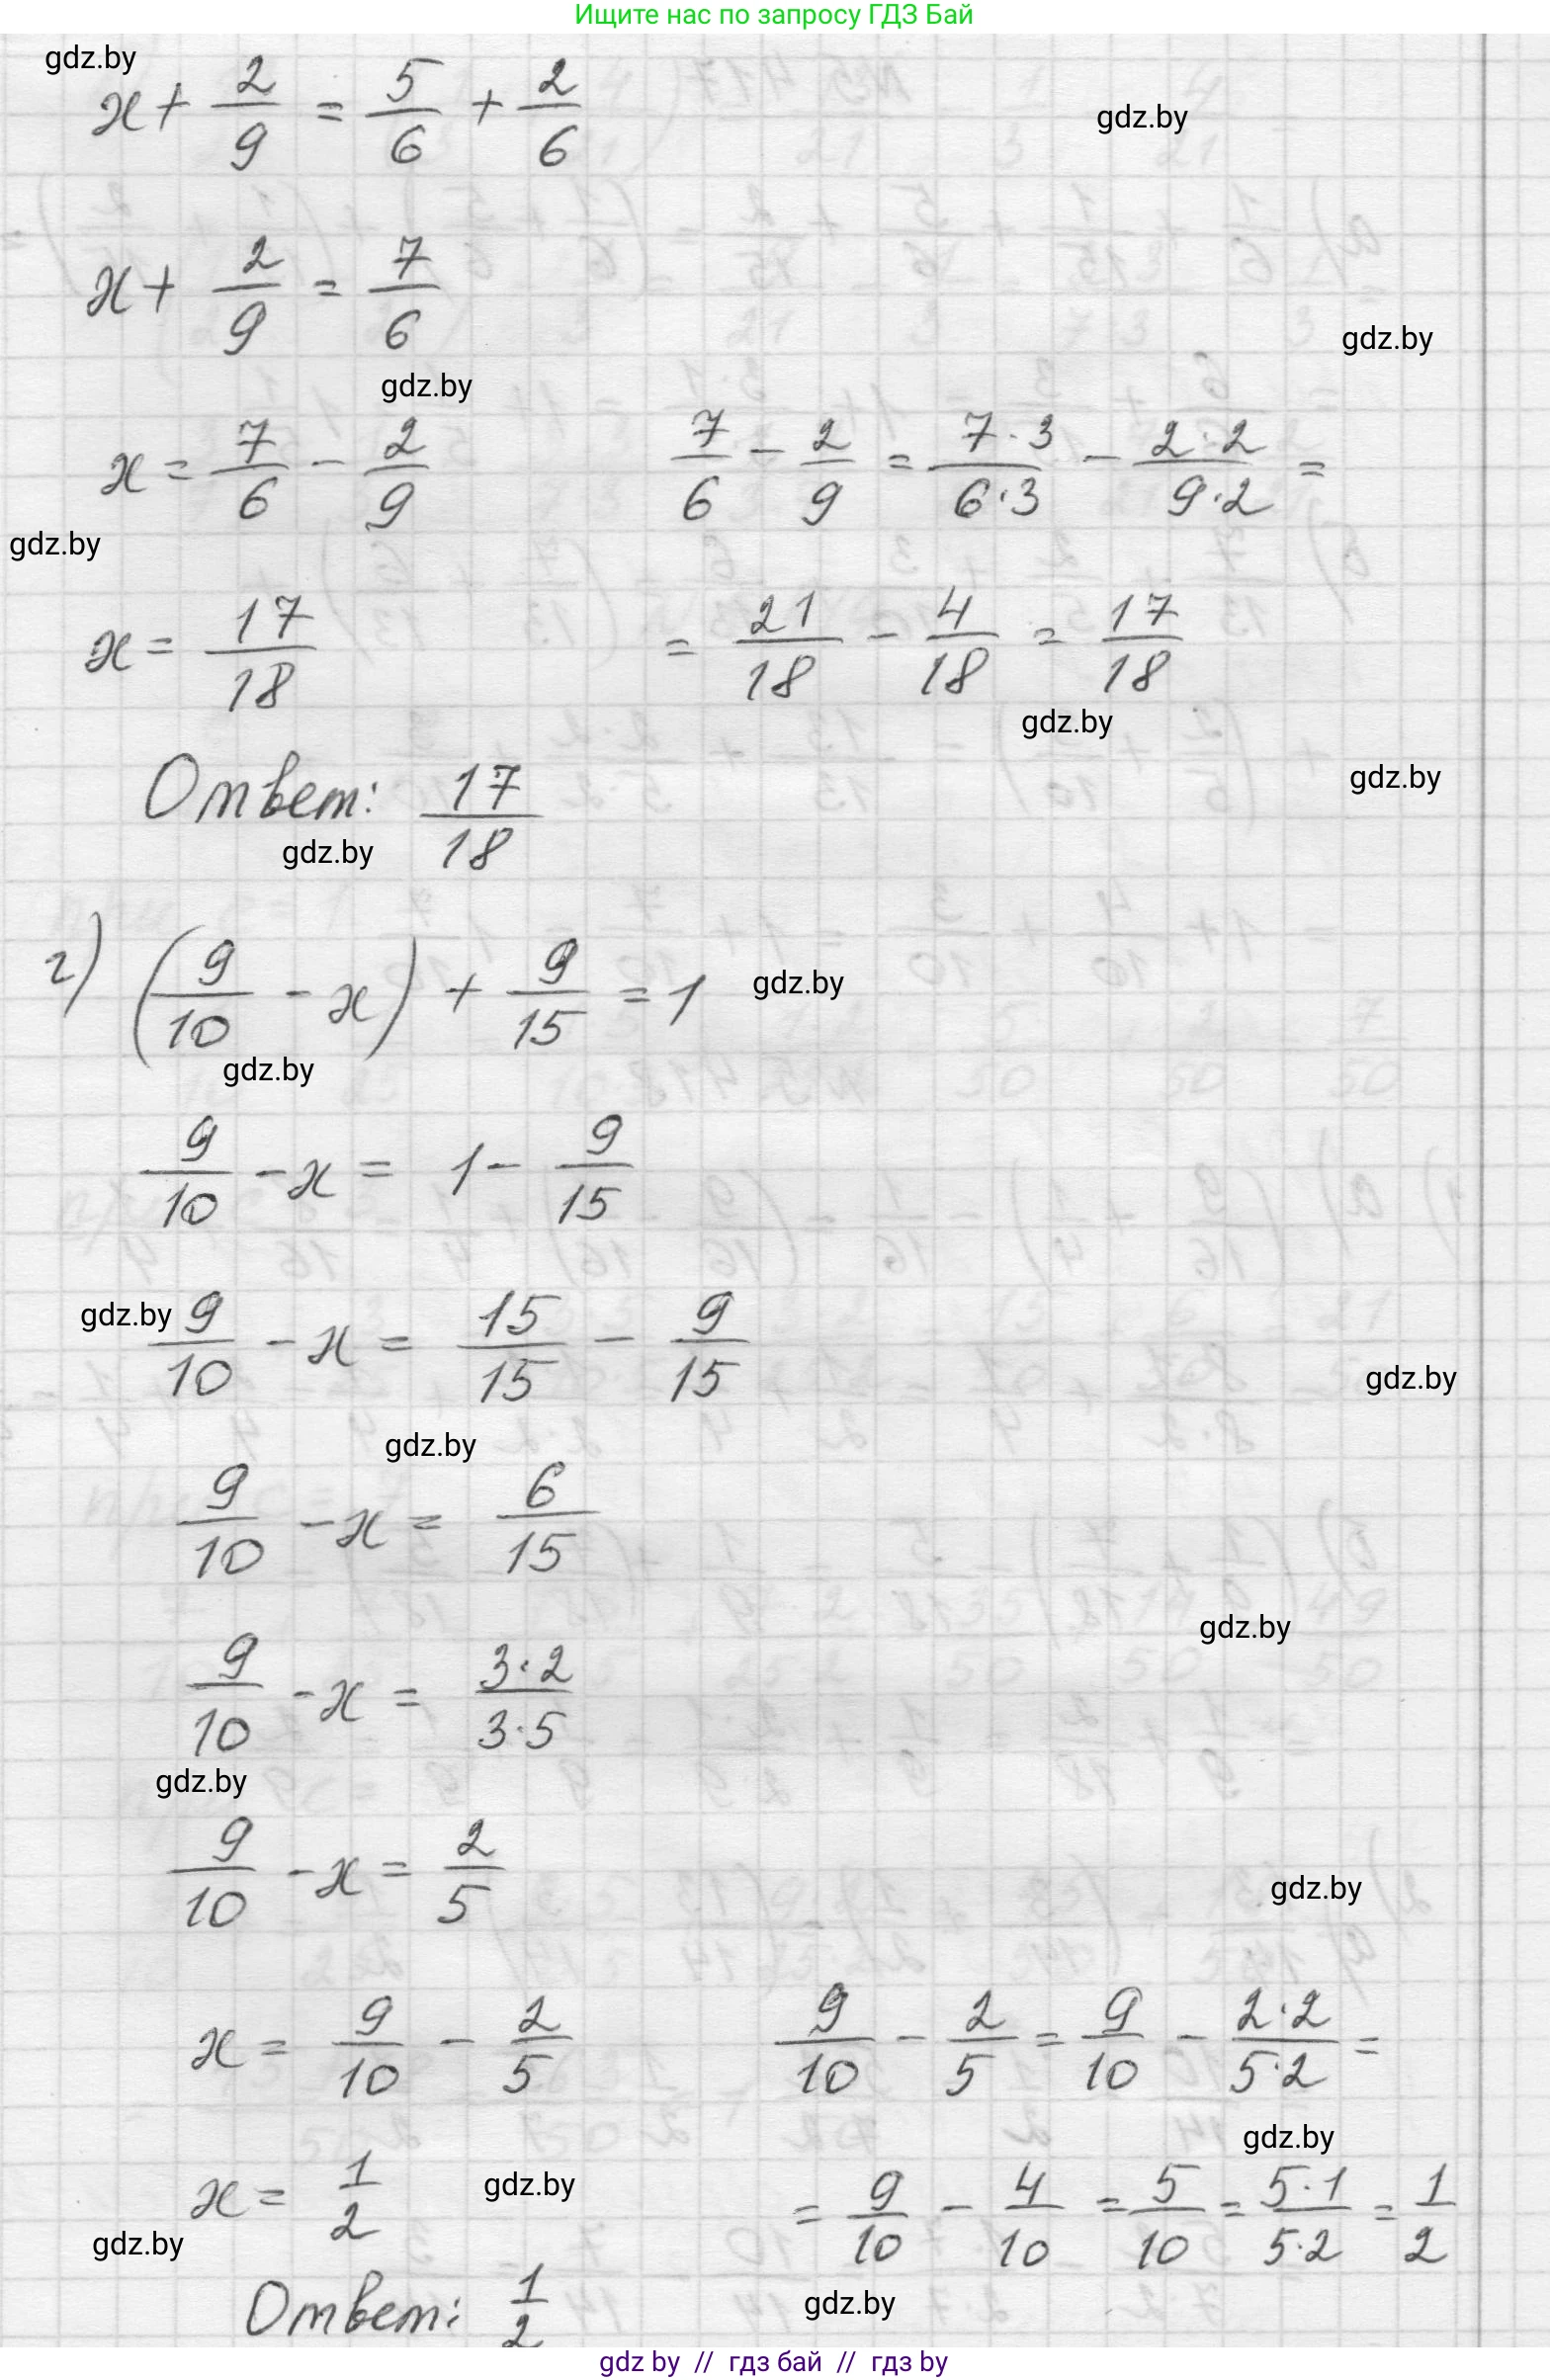 Ищите нас по запросу ГДЗ Бай
gdz.by
x + 2/9 = 5/6 + 2/6
gdz.by
x + 2/9 = 7/6
gdz.by
gdz.by
x = 7/6 - 2/9    7/6 - 2/9 = 7·3/6·3 - 2·2/9·2 =
gdz.by
x = 17/18    = 21/18 - 4/18 = 17/18
gdz.by
gdz.by
Ответ: 17/18
gdz.by
г) (9/10 - x) + 9/15 = 1
gdz.by
gdz.by
9/10 - x = 1 - 9/15
gdz.by
9/10 - x = 15/15 - 9/15
gdz.by
gdz.by
9/10 - x = 6/15
gdz.by
9/10 - x = 3·2/3·5
gdz.by
9/10 - x = 2/5
gdz.by
x = 9/10 - 2/5    9/10 - 2/5 = 9/10 - 2·2/5·2 =
gdz.by
x = 1/2    = 9/10 - 4/10 = 5/10 = 5·1/5·2 = 1/2
gdz.by
gdz.by
Ответ: 1/2
gdz.by
gdz by // гдз бай // гдз by